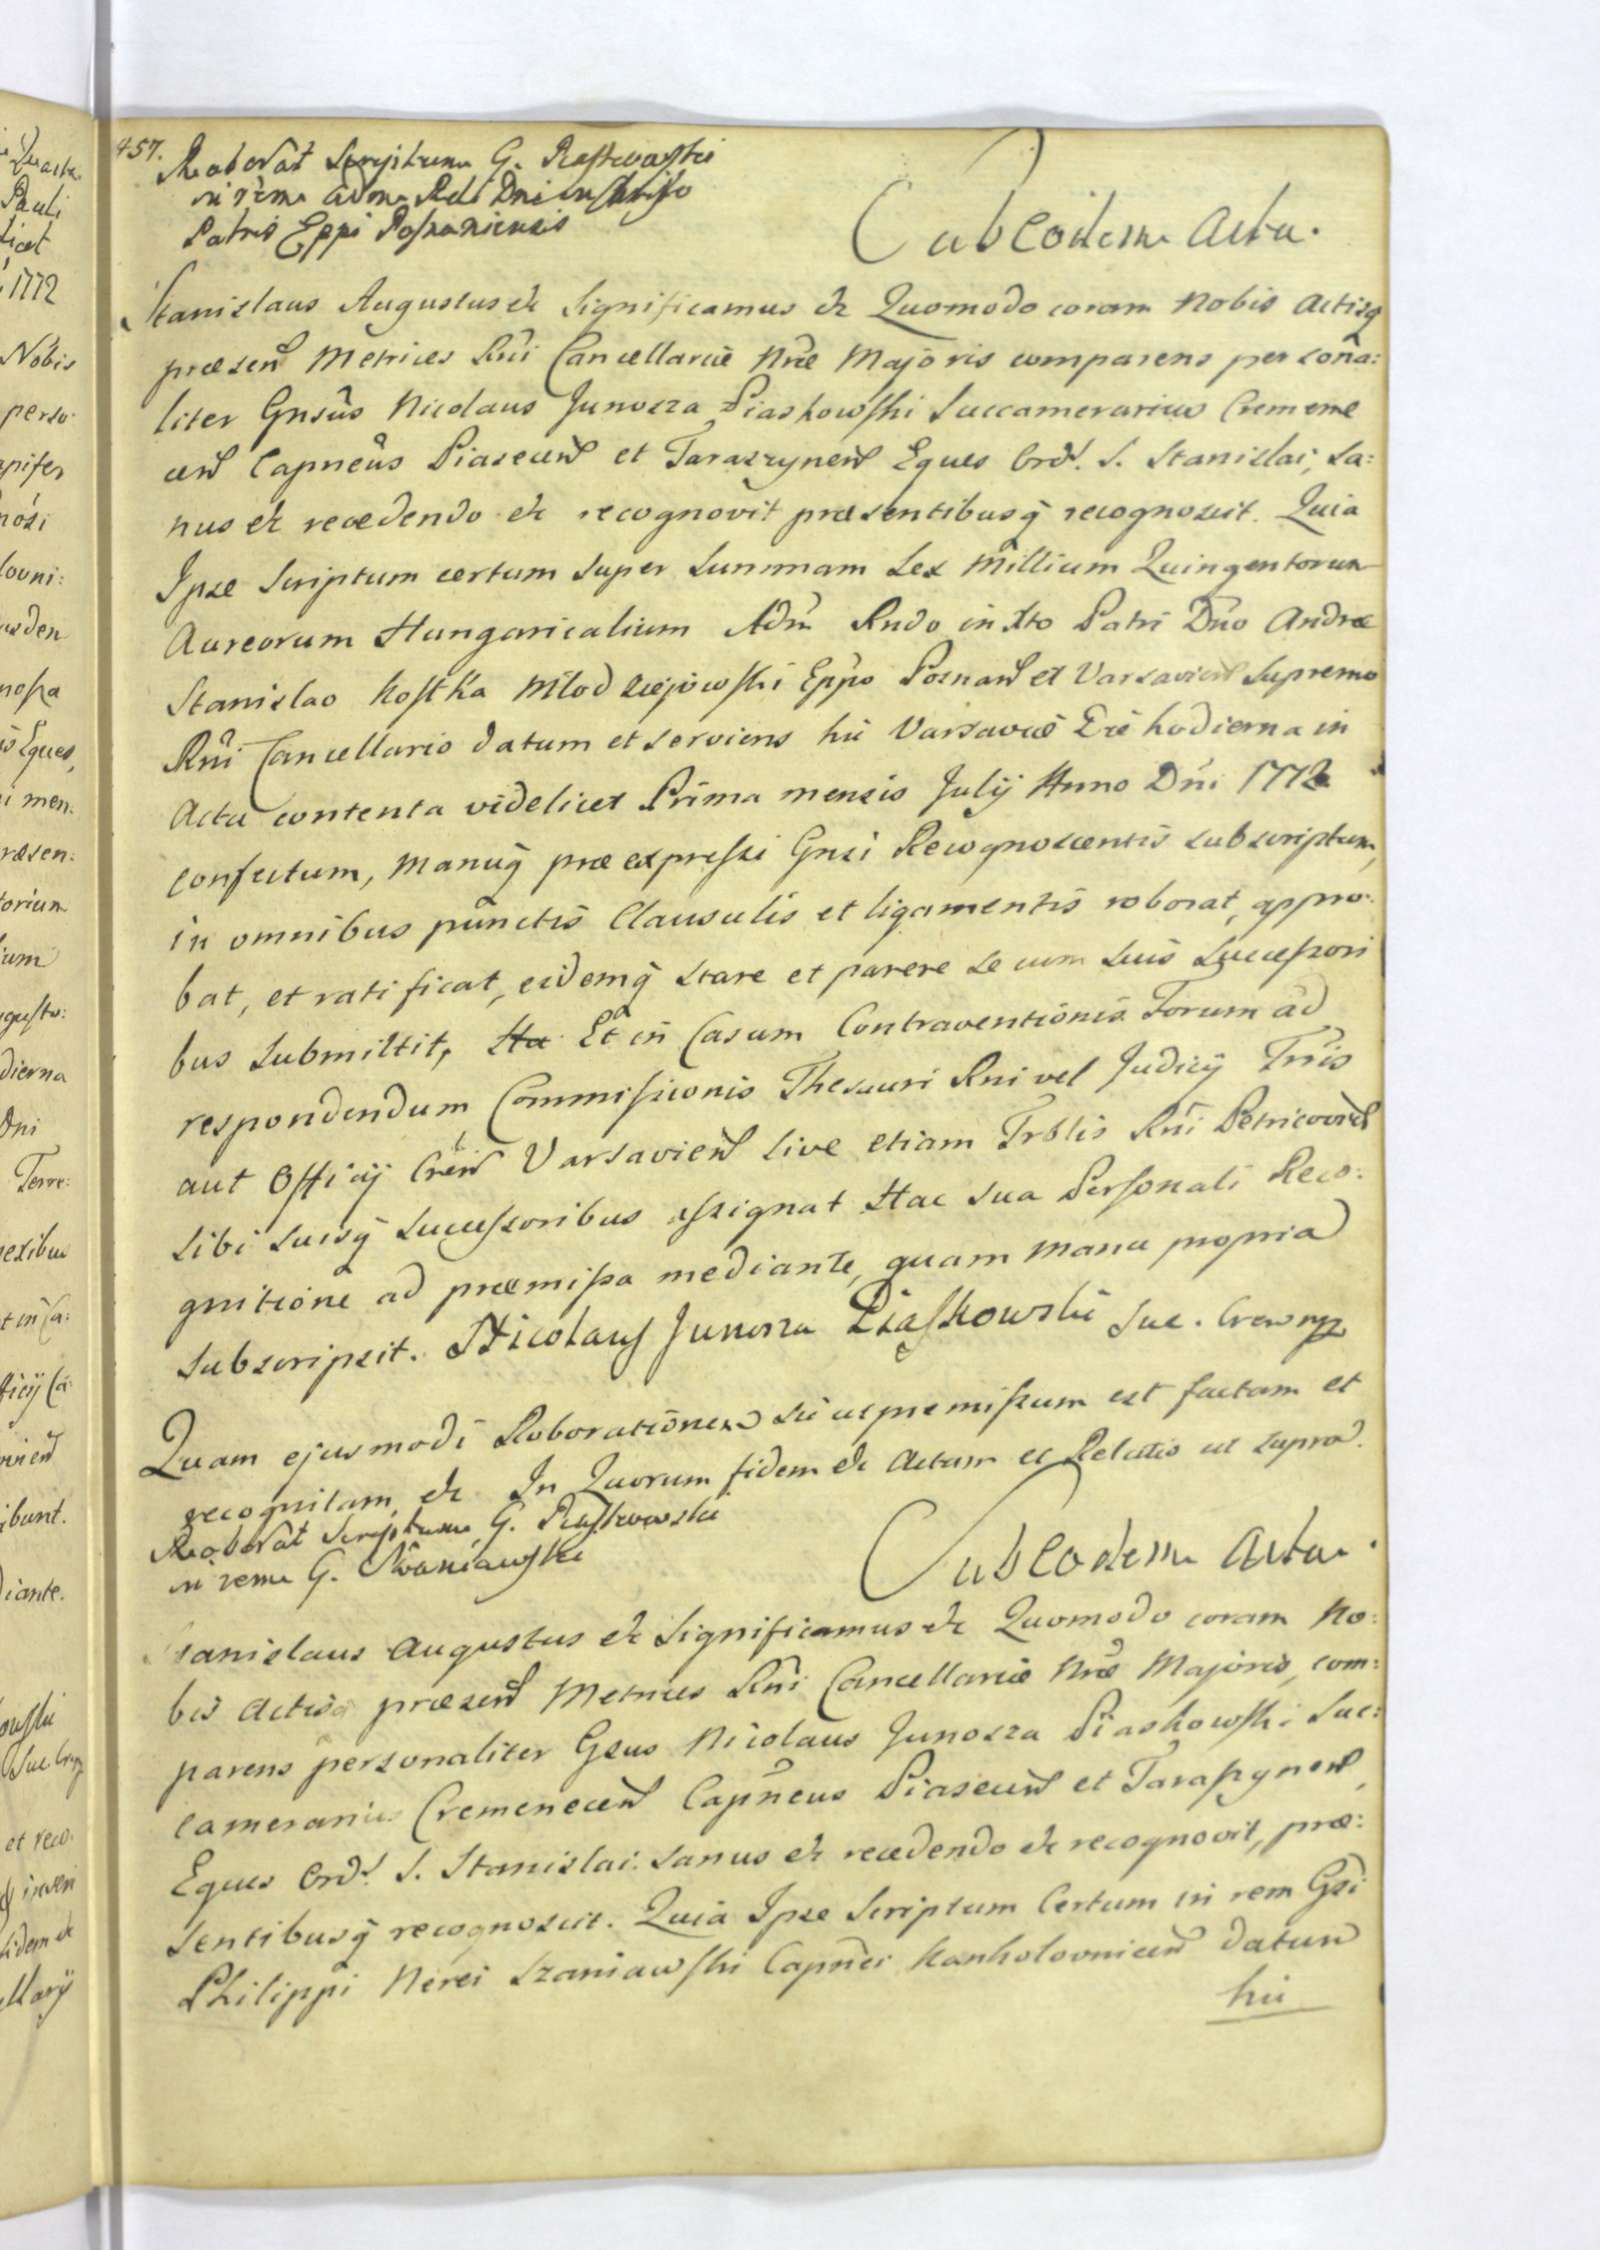 457.
Roborat Scriptum G. Piaskowski
in rem Adm Rdi Dni in Christo
Patris Eppi Posnaniensis
Sub Eodem Actu.
Stanislaus Augustus &c Significamus &c Quomodo coram Nobis Actisq
præsen Metrices Rni Cancellariæ Nræ Majoris comparens persona:
liter Gnsus Nicolaus Junosza Piaskowski Succamerarius Cremene
cen Capneus Piasecen et Taraszynen Eques Ord. S. Stanislai, Sa:
nus &c recedendo &c recognovit præsentibusq recognoscit. Quia
Ipse Scriptum certum super Summam Sex Millium Quingentorum
Aureorum Hungaricalium Adm Rndo in Xto Patri Dno Andreæ
Stanislao Kostka Młodziejowski Eppo Poznan et Varsavien Supremo
Rni Cancellario datum et serviens hic Varsaviæ Die hodierna in
Actu contenta videlicet Prima mensis Julij Anno Dni 1772
confectum, Manuq præexpressi Gnsi Recognoscentis subscriptum,
in omnibus punctis Clausulis et ligamentis roborat, appro:
bat, et ratificat, eidemq stare et parere se cum suis Successori
bus submittit, Et in Casum Contraventionis Forum ad
respondendum Commissionis Thesauri Rni vel Judicij Trris
aut Officij Cren Varsavien sive etiam Trblis Rni Petricovien
sibi suisq Successoribus assignat Hac sua Personali Reco:
gnitione ad præmissa mediante, quam manu propria
subscripsit. Nicolaus Junosza Piaskowski Suc. Crem mp
Quam ejusmodi Roborationem sic ut premissum est factam et
recognitam, &c In Quorum fidem &c Actum et Relatio ut supra.
Roborat Scriptum G. Piaskowski
in rem G. Szaniawski
Sub Eodem Actu.
Stanislaus Augustus &c Significamus &c Quomodo coram No:
bis Actisq præsen Metrices Rni Cancellariæ Nræ Majoris, com:
parens personaliter Gsus Nicolaus Junosza Piaskowski Suc:
camerarius Cremenecen Capneus Piasecen et Taraszynen,
Eques Ord. S. Stanislai. Sanus &c recedendo &c recognovit, præ:
sentibusq recognoscit. Quia Ipse Scriptum Certum in rem Gsi
Philippi Nerei Szaniawski Capnei Kankolovnicen datum
hic